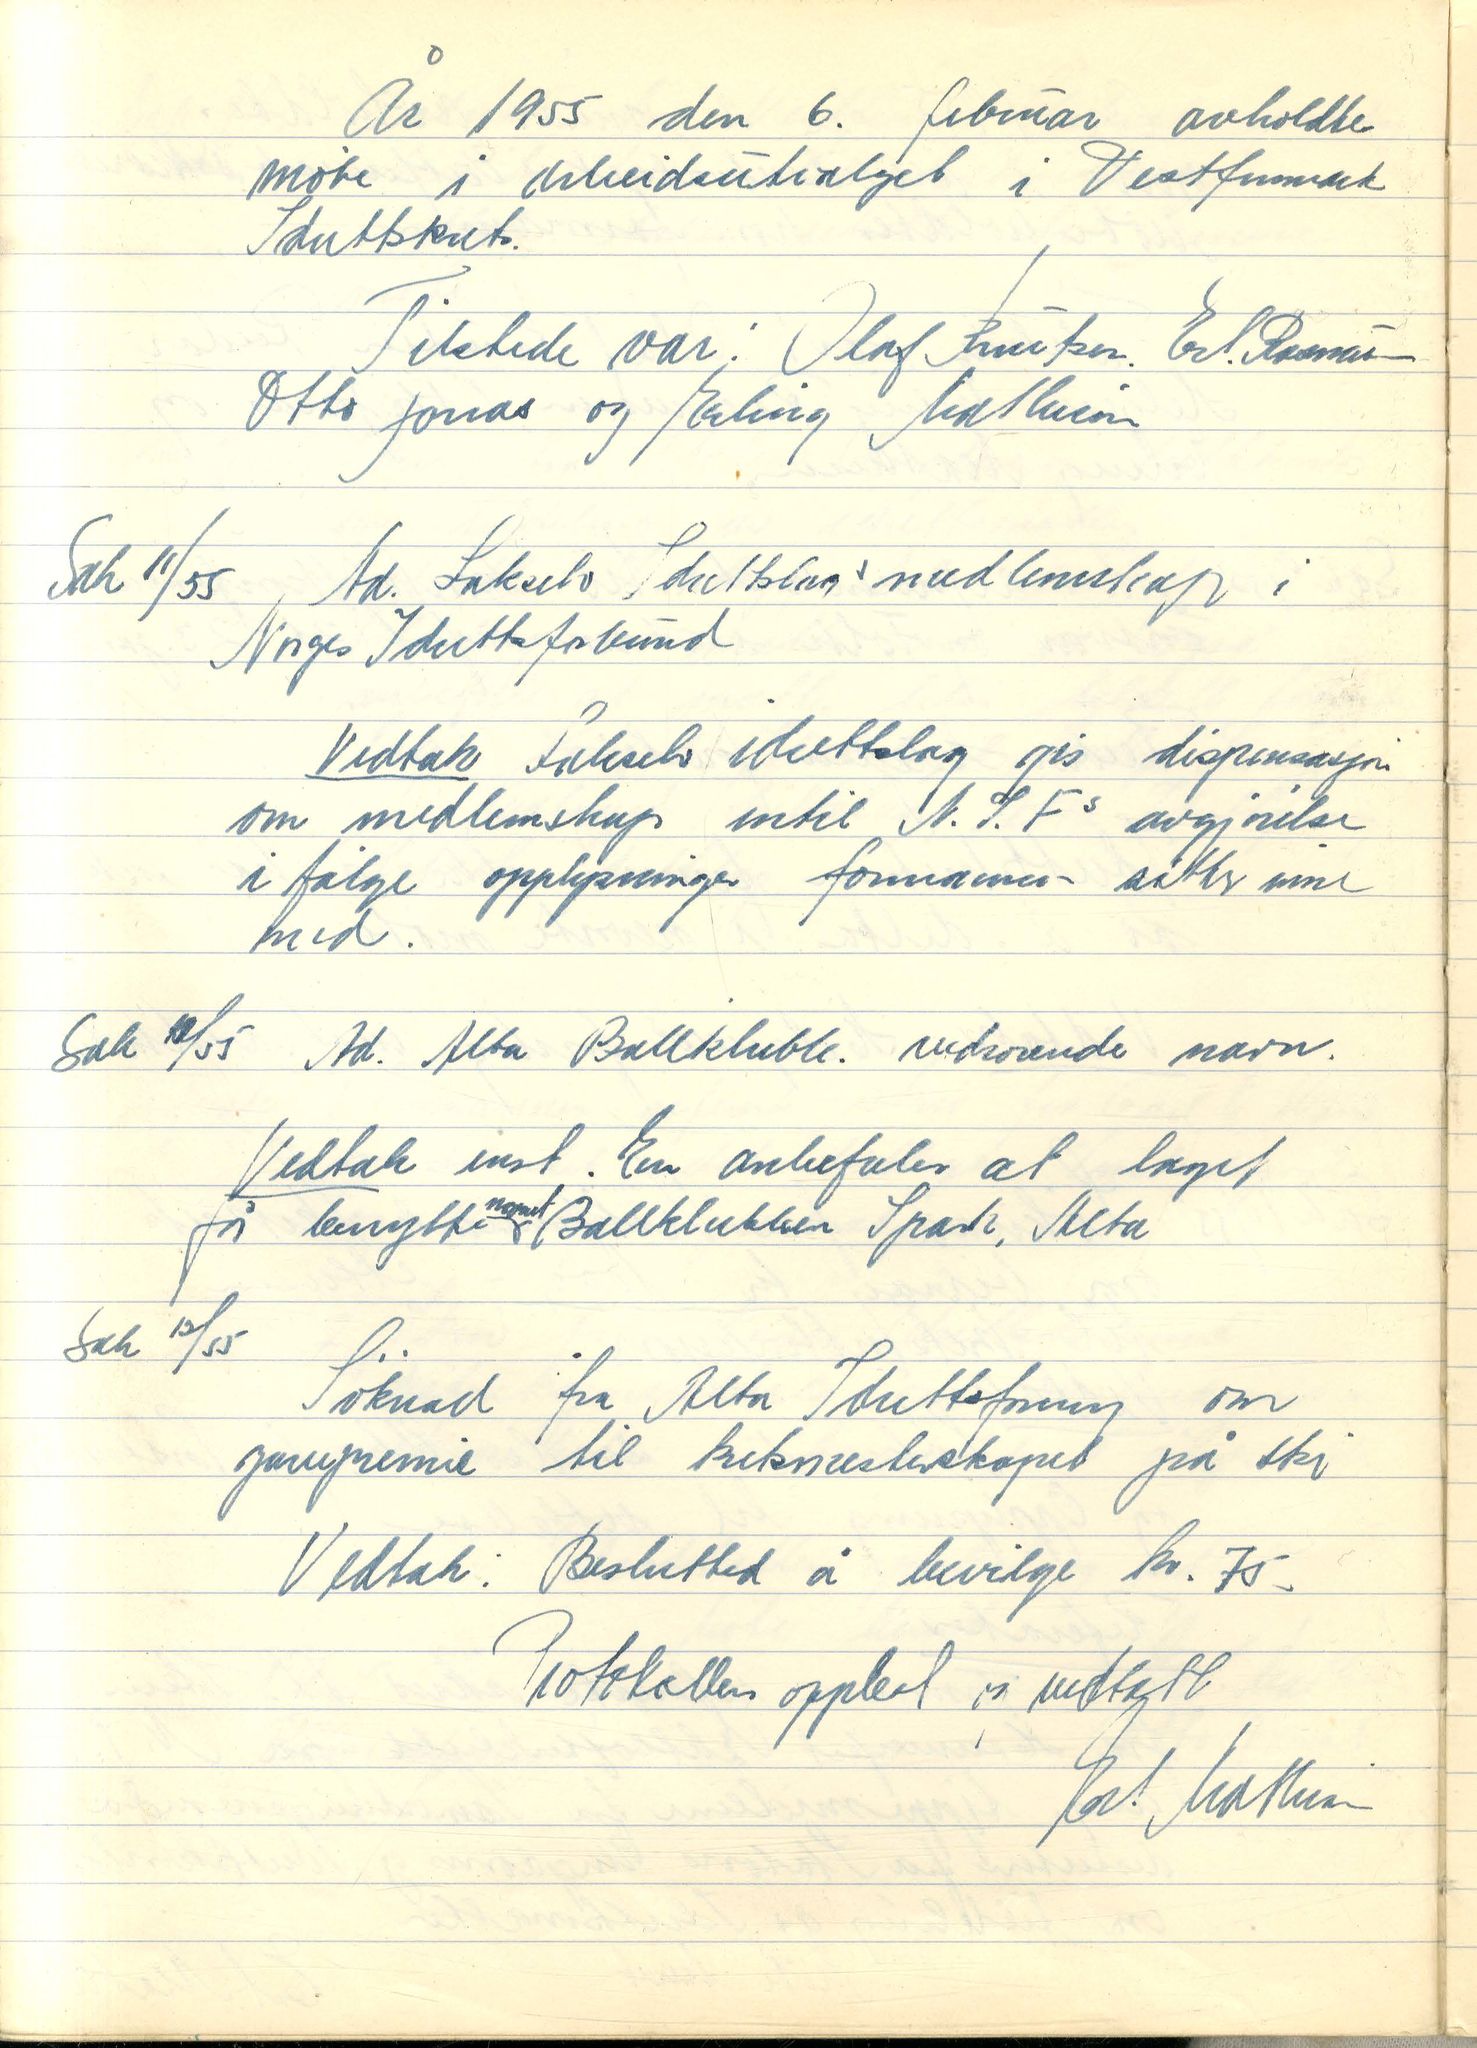 År 1955 den 6. februar avholdte
møte i arbeidsutvalget i Vestfinnmark
Idrettskrets.
Tilstede var: Olaf Knutsen. Erl. Rasmus
Otto Jonas og Erling Mathisen
Sak 11/55 Ad. Lakselv Idrettslags medlemskap i
Norges Idrettsforbund
Vedtak Lakselv idrettslag gis dispensasjon
om medlemskap intil N.I.Fs avgjørelse
i følge opplysninger formannen sitter inne
med.
Sak 12/55 Ad. Alta Ballklubb. vedrørende navn.
Vedtak inst. En anbefaler at laget
får benytte navnet Ballklubben Spark, Alta
Sak 13/55
Søknad fra Alta Idrettsforening om
gavepremie til kretsmesterskapet på ski
Vedtak: Beslutted å bevilge kr. 75-
Protokollen opplest og vedtatt
Erl. Mathisen